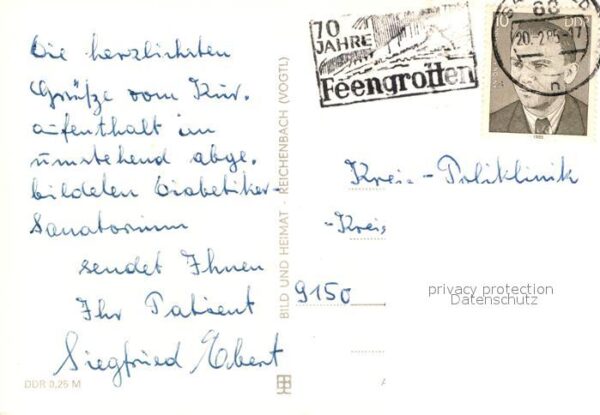 Die herzlichsten
Grüße vom Kur-
aufenthalt im
umstehend abge-
bildeten Diabetiker-
Sanatorium
sendet Ihnen
Ihr Patient
Siegfried Ebert
DDR 0,25 M
BILD UND HEIMAT · REICHENBACH (VOGTL)
70
JAHRE
Feengrotten
68
20.-2.85.-17
n
10
DDR
Kreis-Poliklinik
-Kreis
9150
privacy protection
Datenschutz